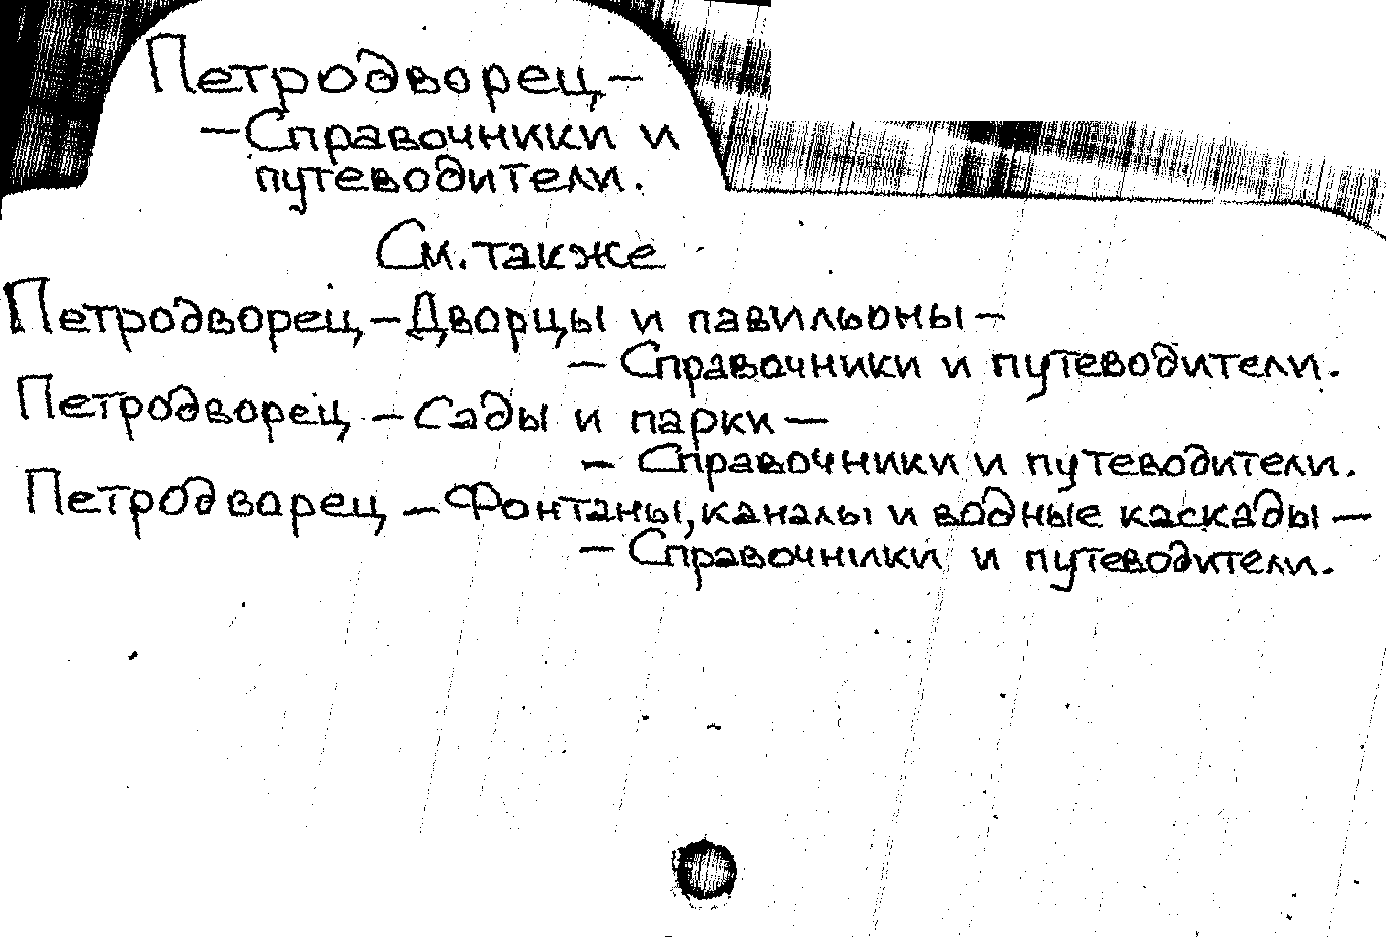 Петродворец –
– Справочники и
путеводители.
См. также
Петродворец – Дворцы и павильоны –
– Справочники и путеводители.
Петродворец – Сады и парки –
– Справочники и путеводители.
Петродворец – Фонтаны, каналы и водные каскады –
– Справочники и путеводители.